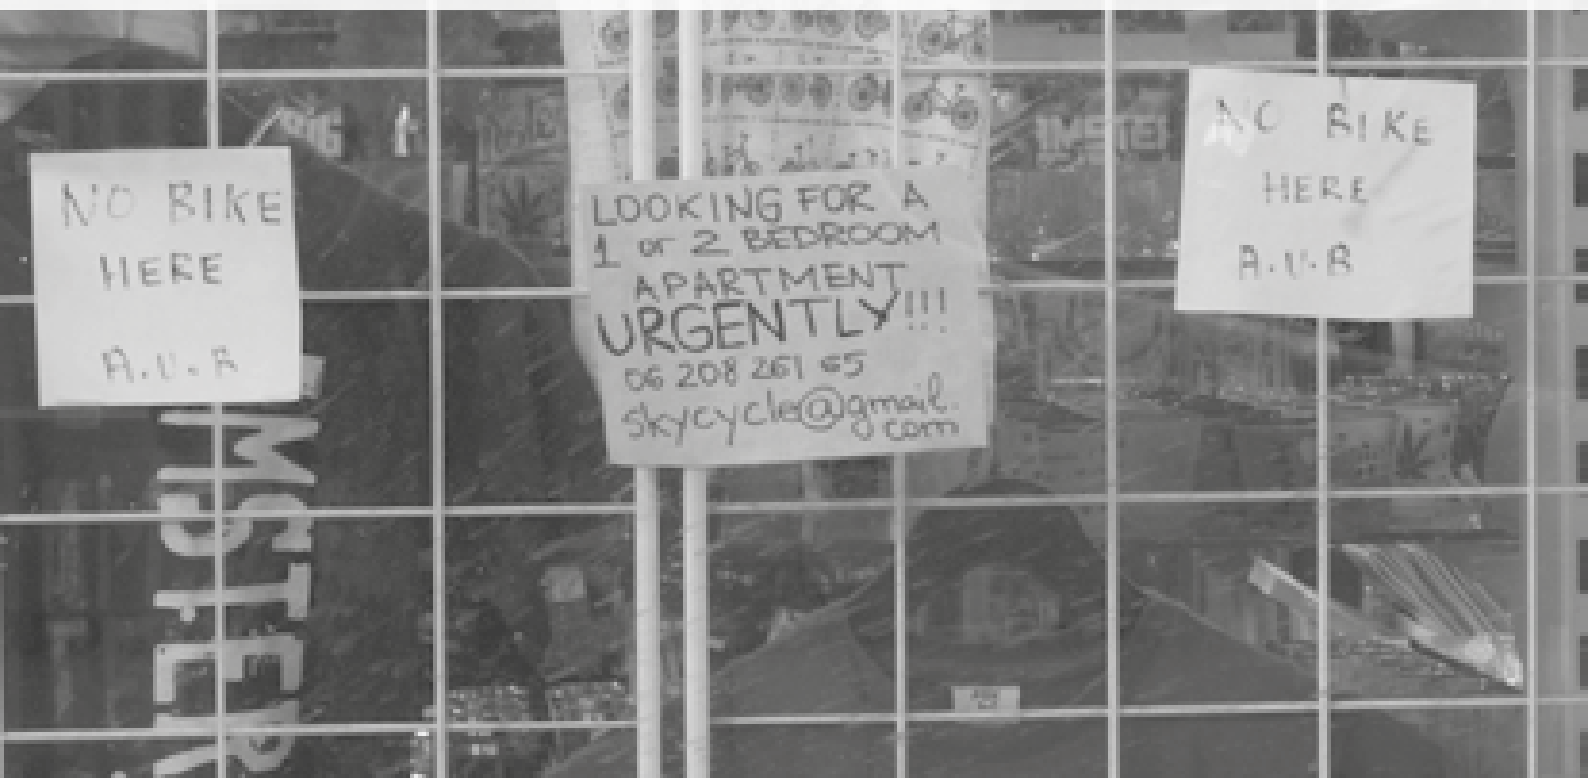 NO BIKE
HERE
A.U.B
LOOKING FOR A
1 or 2 BEDROOM
APARTMENT
URGENTLY!!!
06 208 261 65
skycycle@gmail.
com
NO BIKE
HERE
A.U.B
MSTER